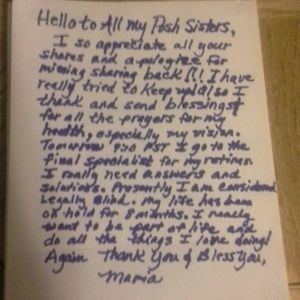 Hello to All my Posh Sisters,
I so appreciate all your
shares and apologize for
missing sharing back!!! I have
really tried to keep up! Also I
thank and send blessings
for all the prayers for my
health, especially my vision.
Tomorrow 9:30 PST I go to the
final specialist for my retinas.
I really need answers and
solutions. Presently I am considered
Legally Blind. My life has been
on hold for 8 months. I really
want to be part of life and
do all the things I love doing!
Again Thank You & Bless You,
Maria